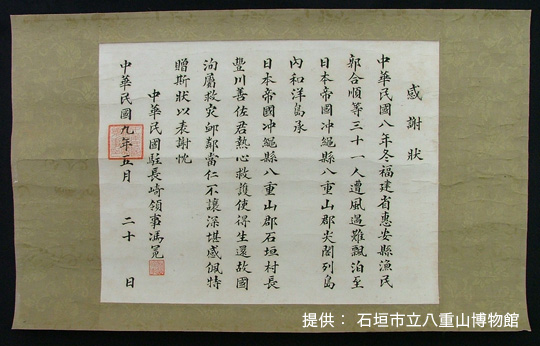 感謝狀
中華民國八年冬福建省惠安縣漁民
郭合順等三十一人遭風遇難飄泊至
日本帝國冲繩縣八重山郡尖閣列島
內和洋島承
日本帝國冲繩縣八重山郡石垣村長
豐川善佐君熱心救護使得生還故國
洵屬救灾卹鄰當仁不讓深堪感佩特
贈斯狀以表謝忱
中華民國駐長崎領事馮冕
中華民國九年五月二十日
提供： 石垣市立八重山博物館